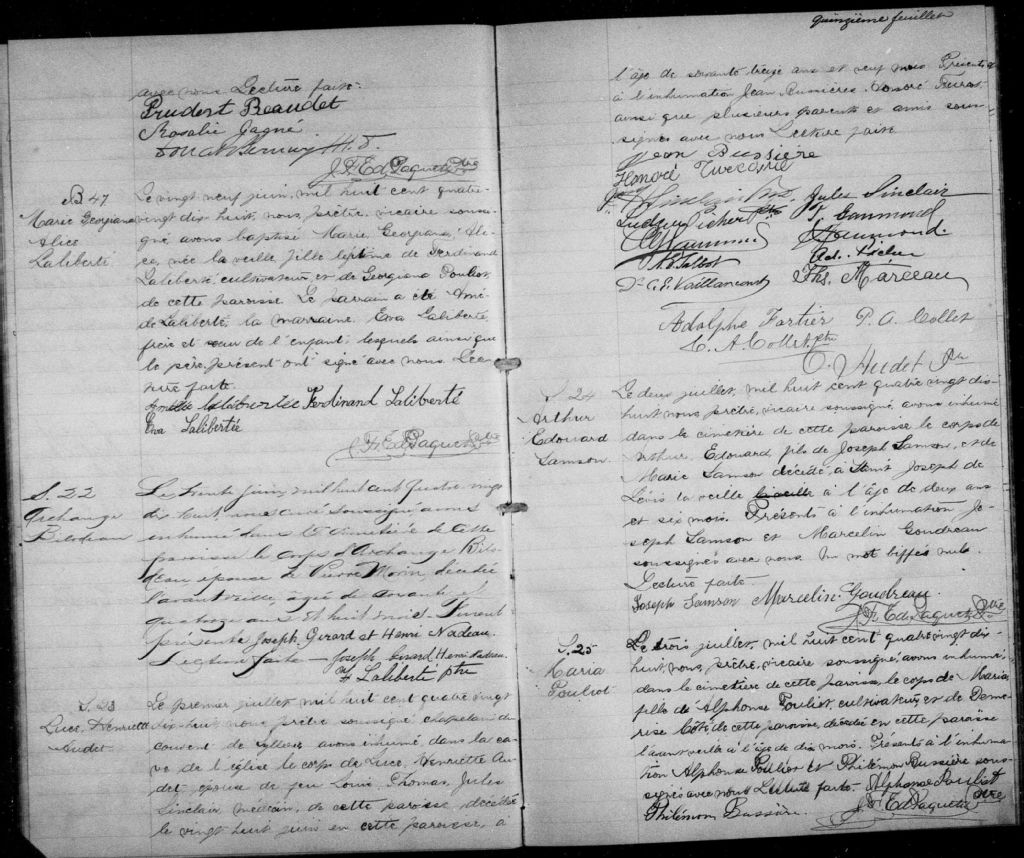 avec nous. Lecture faite.
Prudent Beaudet
Rosalie Gagné
J. F. Ed. Paquet, Ptre
B. 47
Marie Georgiana
Alice
Laliberté
Le vingt neuf juin, mil huit cent quatre-
vingt dix huit, nous, prêtre, vicaire sous-
gné avons baptisé Marie Georgiana, Ali-
ce, née la veille, fille légitime de Ferdinand
Laliberté, cultivateur, et de Georgiana Pouliot,
de cette paroisse. Le parrain a été Amé-
dé Laliberté, la marraine, Eva Laliberté,
frère et sœur de l'enfant, lesquels ainsi que
le père, présent ont signé avec nous. Lec-
ture faite.
Amédée Laliberté Ferdinand Laliberté
Eva Laliberté
J. F. Ed. Paquet, Ptre
S. 22
Archange
Bilodeau
Le trente juin, mil huit cent quatre vingt
dix huit, nous curé soussigné avons
inhumé dans le cimetière de cette
paroisse le corps d'Archange Bilo-
deau épouse de Pierre Morin, décédée
l'avant veille, âgée de soixante et
quatorze ans et huit mois. Furent
présents Joseph Gérard et Henri Nadeau.
Lecture faite — Joseph Gérard Henri Nadeau
Laliberté ptre
S. 23
Luce, Henriette
Audet
Le premier juillet, mil huit cent quatre vingt
dix-huit, nous prêtre soussigné chapelain du
couvent de Sillery, avons inhumé dans la ca-
ve de l'église le corps de Luce, Henriette Au-
det, épouse de feu Louis, Thomas, Jules
Sinclair, médecin, de cette paroisse, décédée
le vingt huit juin en cette paroisse, à
quinzième feuillet
l'âge de soixante treize ans et neuf mois. Présents
à l'inhumation Jean Bussières, Honoré Turcotte
ainsi que plusieurs parents et amis sous-
signés avec nous. Lecture faite
Jean Bussière
Honoré Turcotte
Jules Sinclair
Ludger Pichet ptre
J. Gammond
Hammond
Ad. Pichet
A. E. Talbot
Dr C. E. Vaillancourt Ths. Marceau
Adolphe Fortier P. A. Collet
C. A. Collet, ptre
O. Audet Ptre
S. 24
Arthur
Edouard
Samson.
Le deux juillet, mil huit cent quatre vingt dix-
huit, nous prêtre, vicaire soussigné, avons inhumé
dans le cimetière de cette paroisse le corps de
Arthur, Edouard, fils de Joseph Samson, et de
Marie Samson décédé, à Saint Joseph de
Lévis la veille la veille à l'âge de deux ans
et six mois. Présents à l'inhumation Jo-
seph Samson et Marcelin Goudreau
soussignés avec nous. Un mot biffés nuls.
Lecture faite —
Joseph Samson Marcelin Gaudreau.
J. F. Ed. Paquet, Ptre
S. 25
Maria
Pouliot
Le trois juillet, mil huit cent quatre vingt dix-
huit, nous, prêtre, vicaire soussigné, avons inhumé,
dans le cimetière de cette paroisse, le corps de Maria,
fille de Alphonse Pouliot, cultivateur, et de Deme-
rise Côté de cette paroisse, décédée en cette paroisse
l'avant veille à l'âge de dix mois. Présents à l'inhuma-
tion Alphonse Pouliot et Philémon Bussière sous-
signés avec nous. Lecture faite. Alphonse Pouliot
Philémon Bussière. J. F. Ed. Paquet, Ptre